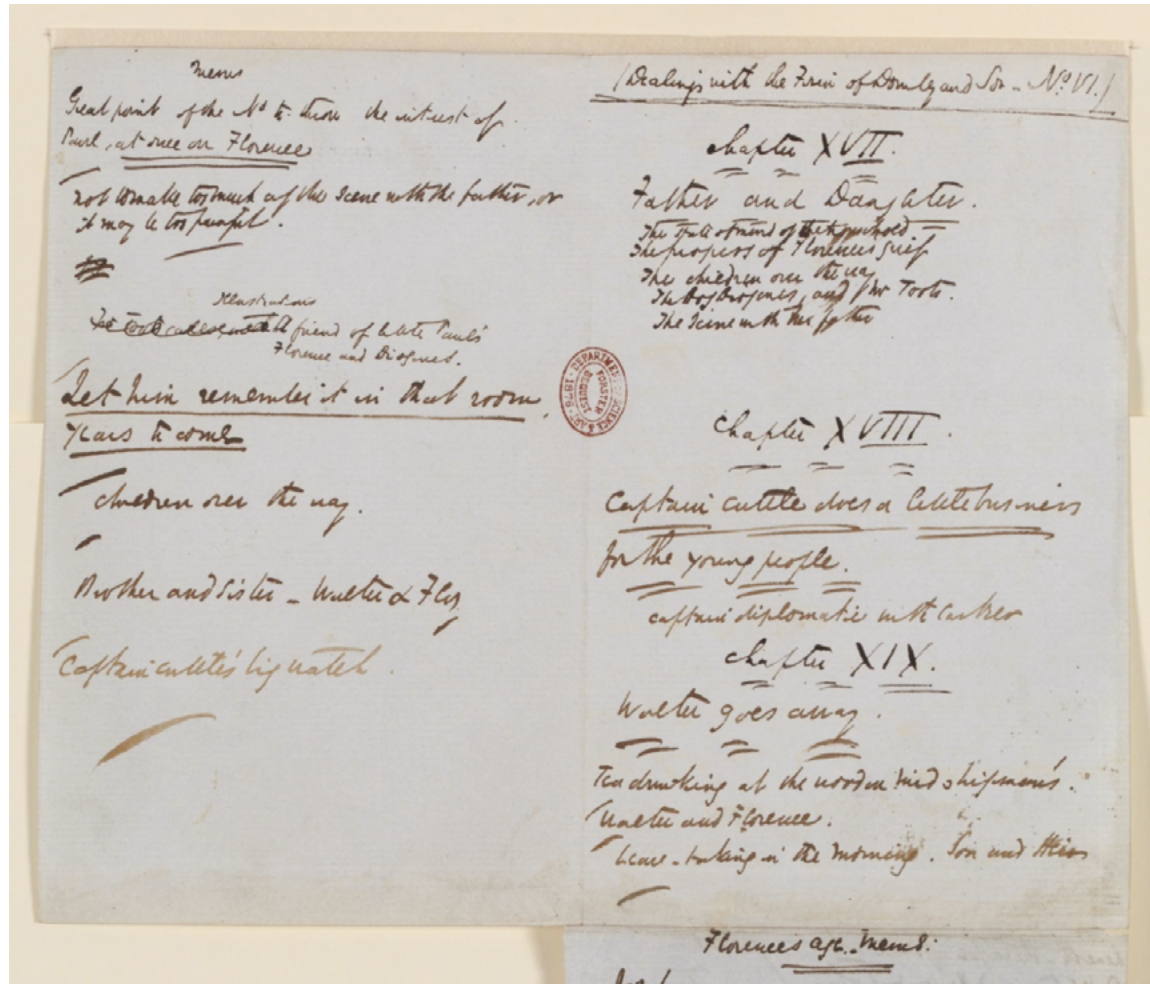 Mems
Great point of the No to throw the interest of
Paul, at once on Florence
not to make too much of the Scene with the father, or
it may be too painful.
Illustrations
friend of little Paul's
Florence and Diogenes.
Let him remember it in that room,
Years to come
children over the way.
Brother and Sister – Walter & Floy
Captain cuttle's big watch.
(Dealings with the Firm of Dombey and Son – No VI.)
Chapter XVII.
Father and Daughter.
The state of mind of the household
The progress of Florence's grief
The children over the way
The dog Diogenes, and Mr Toots.
The Scene with the father
Chapter XVIII.
Captain cuttle does a little business
for the young people.
captain diplomatic with Carker
Chapter XIX.
Walter goes away.
Tea drinking at the wooden Midshipman's.
Walter and Florence.
Leave-taking in the Morning. Son and Heir
Florence's age. Mems:
DEPARTMENT SCIENCE & ART 1876
FORSTER BEQUEST